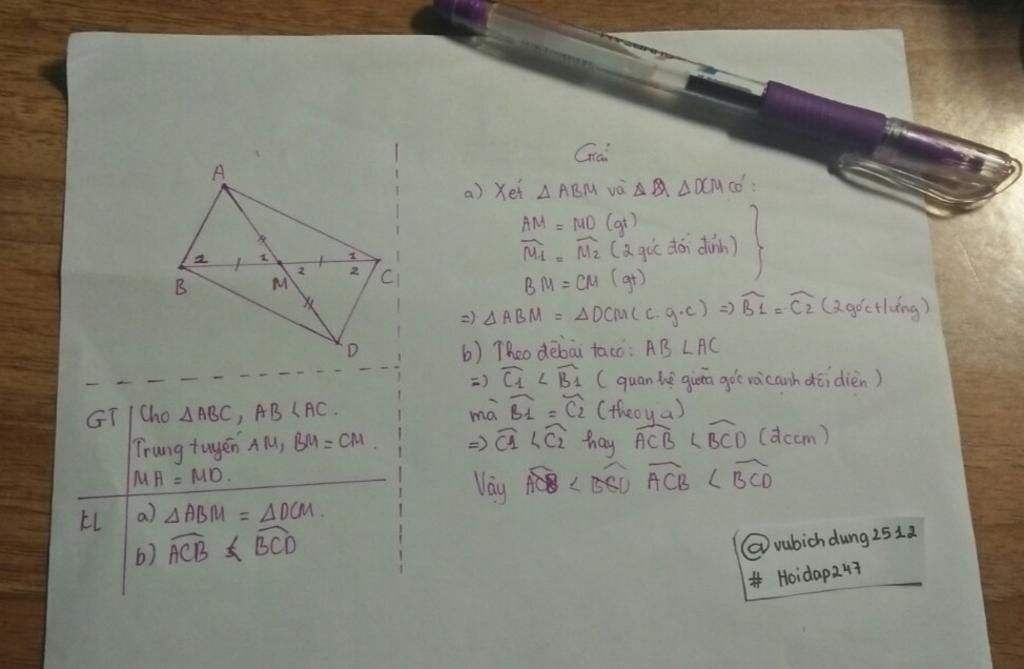 A
B
1
1
M
2
1
2
C
D
GT
Cho △ABC, AB < AC.
Trung tuyến AM, BM = CM.
MA = MD.
KL
a) △ABM = △DCM.
b) ACB < BCD
Giải
a) Xét △ABM và △DCM có:
AM = MD (gt)
M1 = M2 (2 góc đối đỉnh)
BM = CM (gt)
=> △ABM = △DCM (c.g.c) => B1 = C2 (2 góc t/ứng)
b) Theo đề bài ta có: AB < AC
=> C1 < B1 (quan hệ giữa góc và cạnh đối diện)
mà B1 = C2 (theo ý a)
=> C1 < C2 hay ACB < BCD (đccm)
Vậy ACB < BCD
@vubichdung2512
# Hoidap247